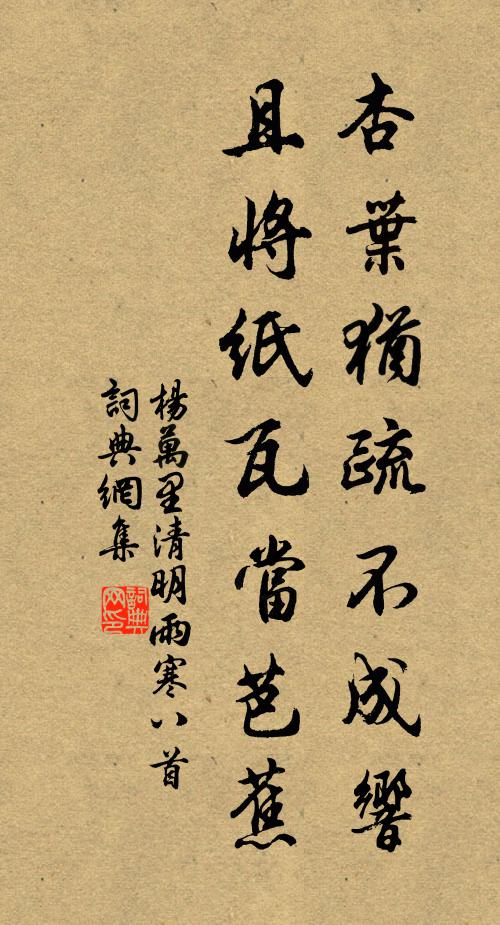 杏葉猶疏不成響
且將紙瓦當芭蕉
楊萬里清明雨寒八首
詞典網集
詞典網印